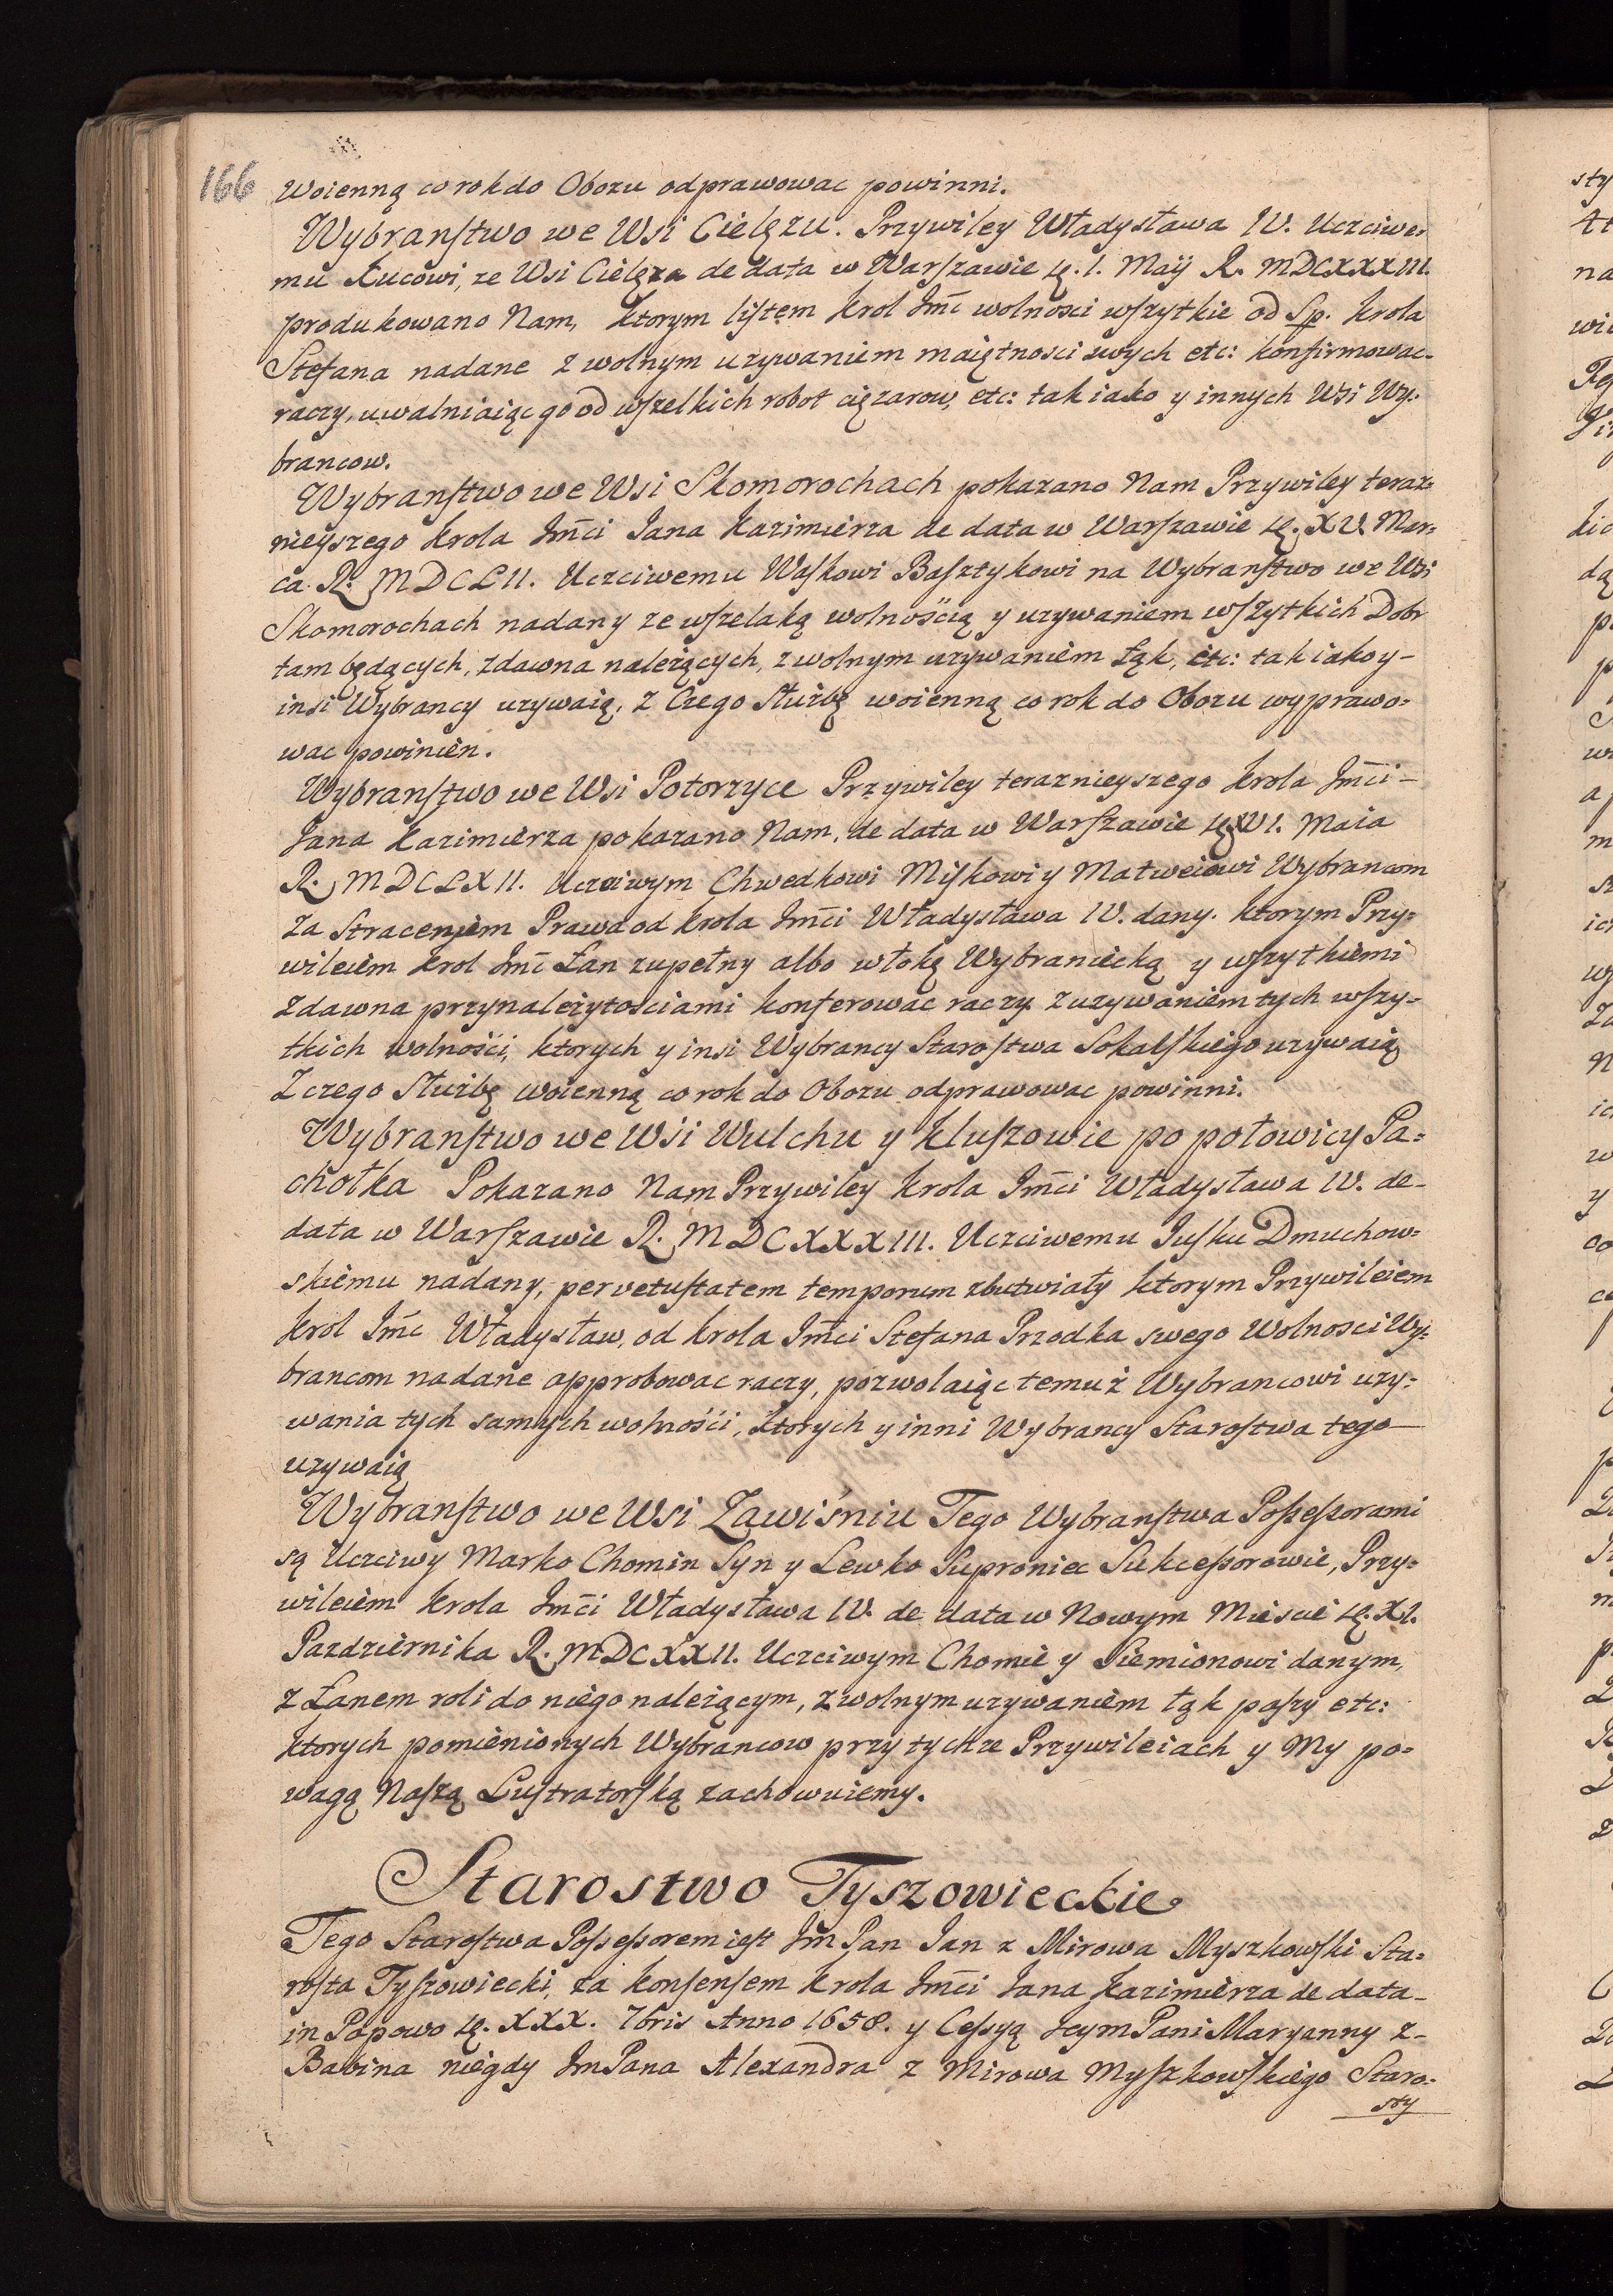 166
Woienną co rok do Obozu odprawowac powinni.
Wybranſtwo we Wsi Cielęzu. Przywiley Władysława IV. Uczciwe=
mu Kucowi, ze Wsi Cielęza de data w Warſzawie 1. Maij R. MDCXXXIII.
produkowano Nam, ktorym liſtem Krol Jmc wolnosci wſzytkie od Sp. Krola
Stefana nadane z wolnym uzywaniem maiętnosci swych etc: konfirmowac-
raczy, uwalniaiąc go od wſzelkich robot cięzarow, etc: tak iako y innych Wsi Wy=
brancow.
Wybranſtwo we Wsi Skomorochach pokazano Nam Przywiley teraz=
nieyszego Krola Jmci Jana Kazimierza de data w Warſzawie XV. Mar=
ca R. MDCLII. Uczciwemu Waſkowi Baſztykowi na Wybranſtwo we Wsi
Skomorochach nadany ze wſzelaką wolnością y uzywaniem wſzytkich Dobr
tam będących, zdawna należących, z wolnym uzywaniem Łąk, etc: tak iako y-
insi Wybrancy uzywaią, z Czego Służbę woienną co rok do Obozu wyprawo=
wac powinien.
Wybranſtwo we Wsi Potorzyce Przywiley teraznieyszego Krola Jmci-
Jana Kazimierza pokazano Nam, de data w Warſzawie XVI. Maia
R. MDCLXII. Uczciwym Chwedkowi Miſkowi y Matweiowi Wybrancom
za Straceniem Prawa od Krola Jmci Władysława IV. dany. ktorym Przy=
wileiem Krol Jmc Łan zupełny albo włokę Wybraniecką y wſzytkiemi
zdawna przynależytosciami konferowac raczy z uzywaniem tych wſzy=
tkich wolności, ktorych y insi Wybrancy Staroſtwa Sokalſkiego uzywaią
Z czego Służbę woienną co rok do Obozu odprawowac powinni.
Wybranſtwo we Wsi Wulchu y Kluſzowie po połowicy Pa=
chołka Pokazano Nam Przywiley Krola Jmci Władysława IV. de-
data w Warſzawie R. MDCXXXIII. Uczciwemu Juſku Dmuchow=
skiemu nadany, per vetuſtatem temporum zbutwiały ktorym Przywileiem
Krol Jmc Władysław, od Krola Jmci Stefana Przodka swego Wolnosci Wy=
brancom nadane approbowac raczy, pozwolaiąc temuż Wybrancowi uzy=
wania tych samych wolności, ktorych y inni Wybrancy Staroſtwa tego
uzywaią
Wybranſtwo we Wsi Zawiśniu Tego Wybranſtwa Poſseſsorami
są Uczciwy Marko Chomin Syn y Lewko Suproniec Sukceſsorowie, Przy=
wileiem Krola Jmci Władysława IV. de data w Nowym Mieście XI.
Pazdziernika R. MDCXXII. Uczciwym Chomie y Siemionowi danym,
z Łanem roli do niego należącym, z wolnym uzywaniem łąk paſzy etc:
ktorych pomienionych Wybrancow przy tychze Przywileiach y My po=
wagą Naſzą Luſtratorſką zachowuiemy.
Starostwo Tyszowieckie
Tego Staroſtwa Poſseſsorem ieſt Jm Pan Jan z Mirowa Myszkowſki Sta=
roſta Tyſzowiecki, za konſenſem Krola Jmci Jana Kazimierza de data-
in Papowo XXX. 7bris Anno 1658. y Ceſsyą Jeym Pani Maryanny z-
Babina niegdy Jm Pana Alexandra z Mirowa Myſzkowſkiego Staro=
sty